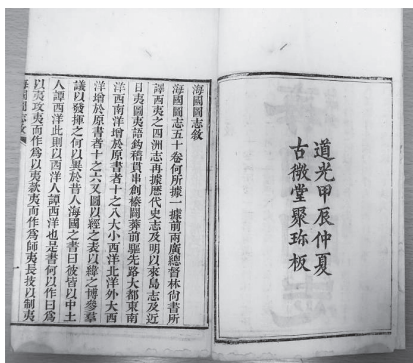 道光甲辰仲夏
古微堂聚珍板
海國圖志敘
海國圖志五十卷何所據一據前兩廣總督林尚書所
譯西夷之四洲志再據歷代史志及明以來島志及近
日夷圖夷語鉤稽貫串創榛闢莽前驅先路大都東南
洋西南洋增於原書者十之八大小西洋北洋外大西
洋增於原書者十之六又圖以經之表以緯之博參羣
議以發揮之何以異於昔人海圖之書曰彼皆以中土
人譚西洋此則以西洋人譚西洋也是書何以作曰爲
以夷攻夷而作爲以夷款夷而作爲師夷長技以制夷